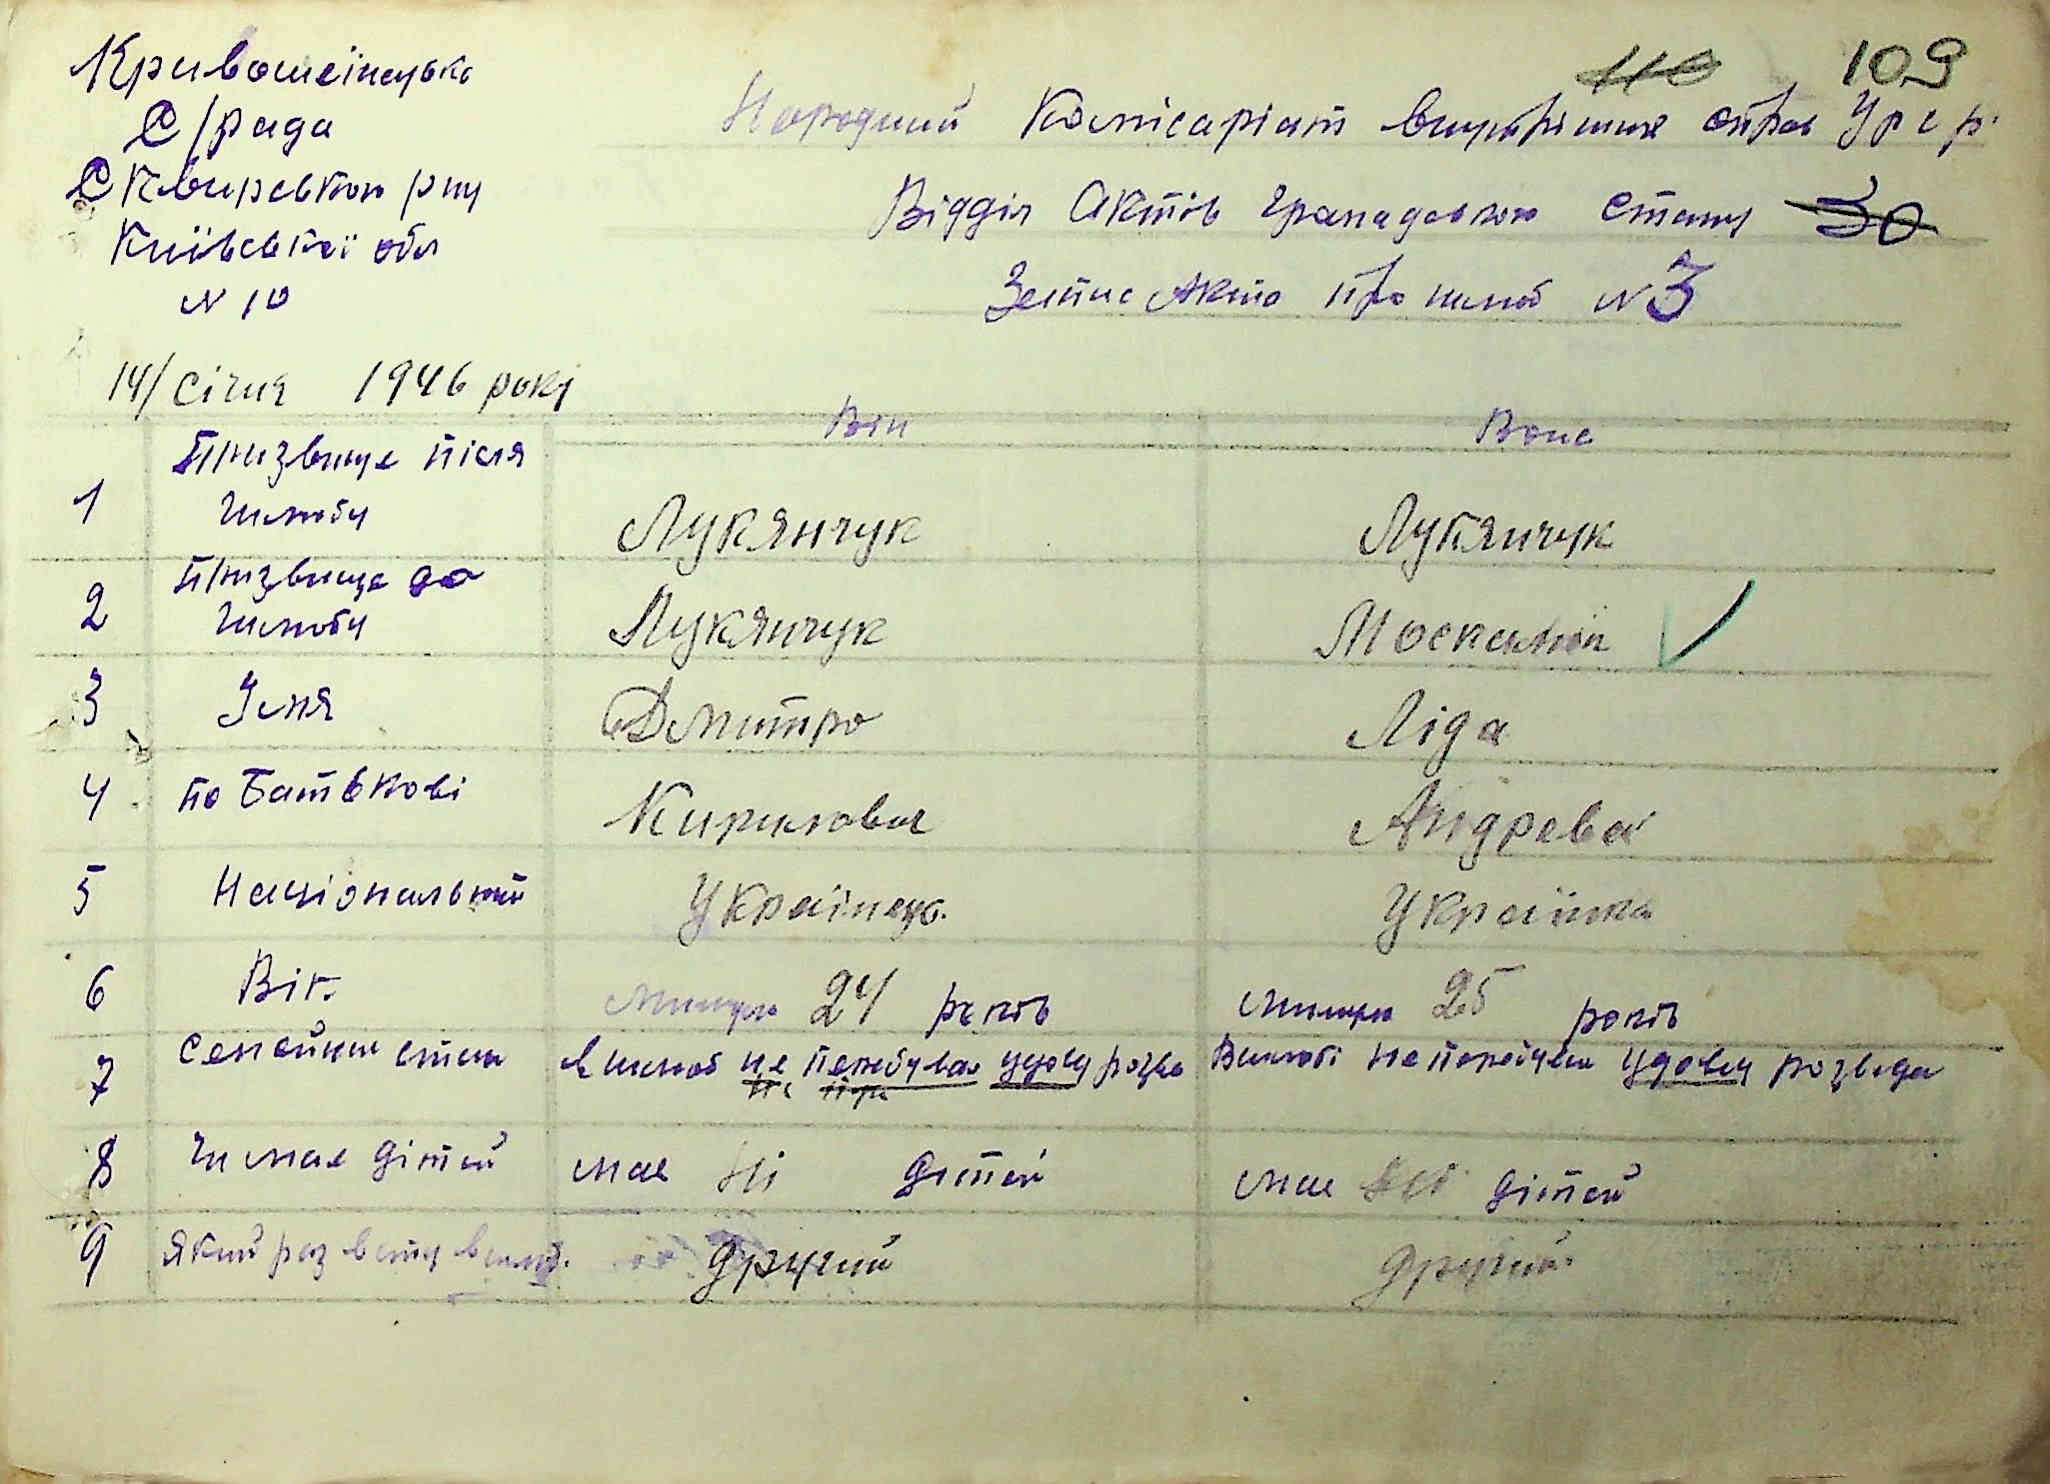 109
Кривошеїнська
С/рада
Сквирського рну
Київської обл
N 10
Народний Комісаріат внутрішніх справ УРСР.
Відділ Актів громадського стану 30
Запис Акта про шлюб N 3
14/Січня 1946 рокі
Він Вона
1 Прізвище після шлюбу Лукянчук Лукянчук
2 Прізвище до шлюбу Лукянчук
3 Імя Дмитро Ліда
4 по Батькові Кирилович Андрева
5 Національний Українець. Українка
6 Вік. Минуло 24 років Минуло 25 років
7 Семейний стан в шлюб не перебував удовц розве В шлюбі не перебувала Удовец розведа
8 Чи має дітей має ні дітей має ні дітей
9 Який раз вступ в шлюб. другий другий.